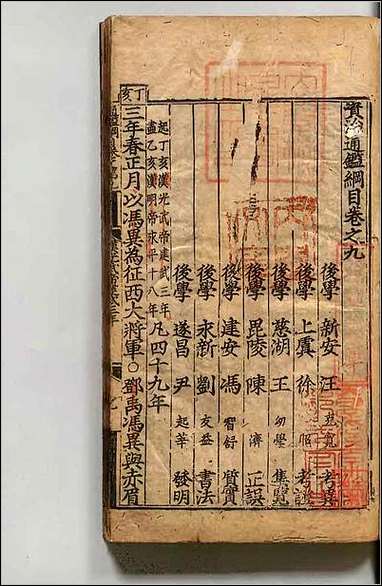 資治通鑑綱目卷之九
後學 新安 汪 克寬 考異
後學 上虞 徐 昭 考證
後學 慈湖 王 幼學 集覽
後學 毘陵 陳 濟 正誤
後學 建安 馮 智舒 質實
後學 永新 劉 友益 書法
後學 遂昌 尹 起莘 發明
起丁亥漢光武帝建武三年
盡乙亥漢明帝永平十八年 凡四十九年
丁亥
三年春正月以馮異為征西大將軍○鄧禹馮異與赤眉